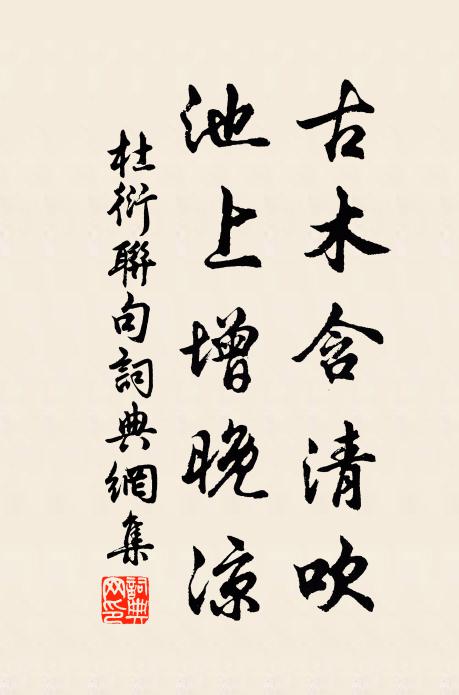 古木含清吹
池上增晚涼
杜衍聯句詞典網集
詞典網印